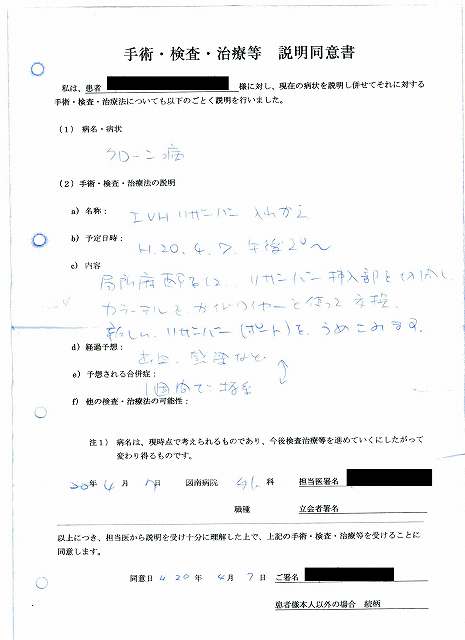 手術・検査・治療等 説明同意書
私は、患者 様に対し、現在の病状を説明し併せてそれに対する
手術・検査・治療法についても以下のごとく説明を行いました。
(1) 病名・病状
クローン病
(2) 手術・検査・治療法の説明
a) 名称: IVH リザーバー 入れかえ
b) 予定日時: H.20.4.7. 午後2º〜
c) 内容
局所麻酔下に、リザーバー挿入部を切開し、
カテーテルを ガイドワイヤーを使って 交換、
新しい リザーバー (ポート)を、うめこみます。
d) 経過予想: 出血、感染など
e) 予想される合併症:
1週間で抜糸
f) 他の検査・治療法の可能性:
注1) 病名は、現時点で考えられるものであり、今後検査治療等を進めていくにしたがって
変わり得るものです。
20年 4月 7日 図南病院 外科 担当医署名
職種 立会者署名
以上につき、担当医から説明を受け十分に理解した上で、上記の手術・検査・治療等を受けることに
同意します。
同意日 20年 4月 7日 ご署名
患者様本人以外の場合 続柄